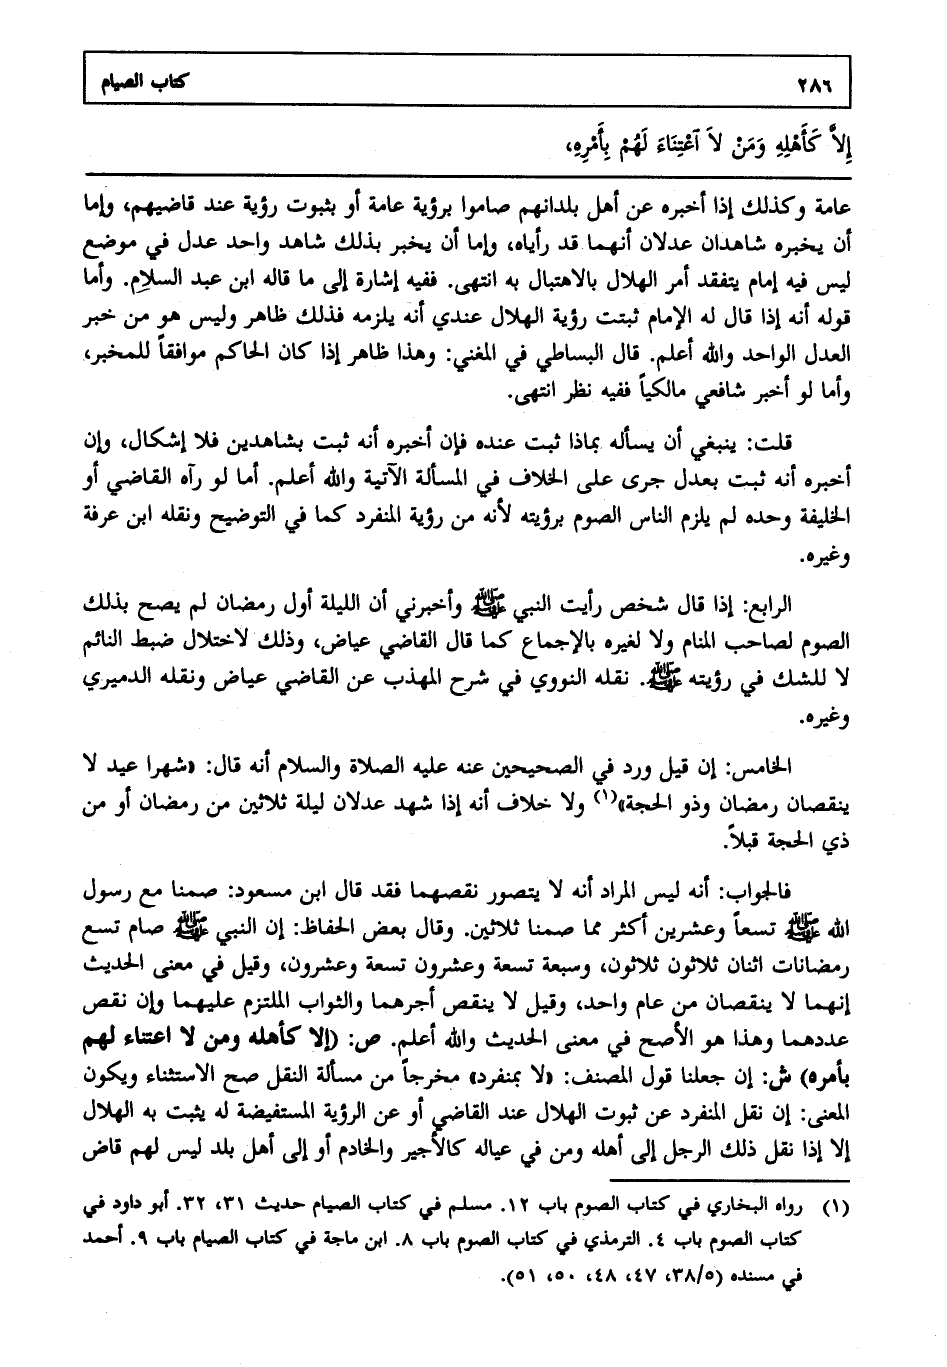 ٢٨٦ كتاب الصيام
إِلاَّ كَأَهْلِهِ وَمَنْ لاَ اَعْتِنَاءَ لَهُمْ بِأَمْرِهِ،
عامة وكذلك إذا أخبره عن أهل بلدانهم صاموا برؤية عامة أو بثبوت رؤية عند قاضيهم، وإما
أن يخبره شاهدان عدلان أنهما قد رأياه، وإما أن يخبر بذلك شاهد واحد عدل في موضع
ليس فيه إمام يتفقد أمر الهلال بالاهتبال به انتهى. ففيه إشارة إلى ما قاله ابن عبد السلام. وأما
قوله أنه إذا قال له الإمام ثبتت رؤية الهلال عندي أنه يلزمه فذلك ظاهر وليس هو من خبر
العدل الواحد والله أعلم. قال البساطي في المغني: وهذا ظاهر إذا كان الحاكم موافقاً للمخبر،
وأما لو أخبر شافعي مالكياً ففيه نظر انتهى.
قلت: ينبغي أن يسأله بماذا ثبت عنده فإن أخبره أنه ثبت بشاهدين فلا إشكال، وإن
أخبره أنه ثبت بعدل جرى على الخلاف في المسألة الآتية والله أعلم. أما لو رآه القاضي أو
الخليفة وحده لم يلزم الناس الصوم برؤيته لأنه من رؤية المنفرد كما في التوضيح ونقله ابن عرفة
وغيره.
الرابع: إذا قال شخص رأيت النبي ﷺ وأخبرني أن الليلة أول رمضان لم يصح بذلك
الصوم لصاحب المنام ولا لغيره بالإجماع كما قال القاضي عياض، وذلك لاختلال ضبط النائم
لا للشك في رؤيته ﷺ. نقله النووي في شرح المهذب عن القاضي عياض ونقله الدميري
وغيره.
الخامس: إن قيل ورد في الصحيحين عنه عليه الصلاة والسلام أنه قال: «شهرا عيد لا
ينقصان رمضان وذو الحجة»(١) ولا خلاف أنه إذا شهد عدلان ليلة ثلاثين من رمضان أو من
ذي الحجة قبلاً.
فالجواب: أنه ليس المراد أنه لا يتصور نقصهما فقد قال ابن مسعود: صمنا مع رسول
الله ﷺ تسعاً وعشرين أكثر مما صمنا ثلاثين. وقال بعض الحفاظ: إن النبي ﷺ صام تسع
رمضانات اثنان ثلاثون ثلاثون، وسبعة تسعة وعشرون تسعة وعشرون، وقيل في معنى الحديث
إنهما لا ينقصان من عام واحد، وقيل لا ينقص أجرهما والثواب الملتزم عليهما وإن نقص
عددهما وهذا هو الأصح في معنى الحديث والله أعلم. ص: (إلا كأهله ومن لا اعتناء لهم
بأمره) ش: إن جعلنا قول المصنف: «لا بمنفرد» مخرجاً من مسألة النقل صح الاستثناء ويكون
المعنى: إن نقل المنفرد عن ثبوت الهلال عند القاضي أو عن الرؤية المستفيضة له يثبت به الهلال
إلا إذا نقل ذلك الرجل إلى أهله ومن في عياله كالأجير والخادم أو إلى أهل بلد ليس لهم قاض
(١) رواه البخاري في كتاب الصوم باب ١٢. مسلم في كتاب الصيام حديث ٣١، ٣٢. أبو داود في
كتاب الصوم باب ٤. الترمذي في كتاب الصوم باب ٨. ابن ماجة في كتاب الصيام باب ٩. أحمد
في مسنده (٣٨/٥، ٤٧، ٤٨، ٥٠، ٥١).